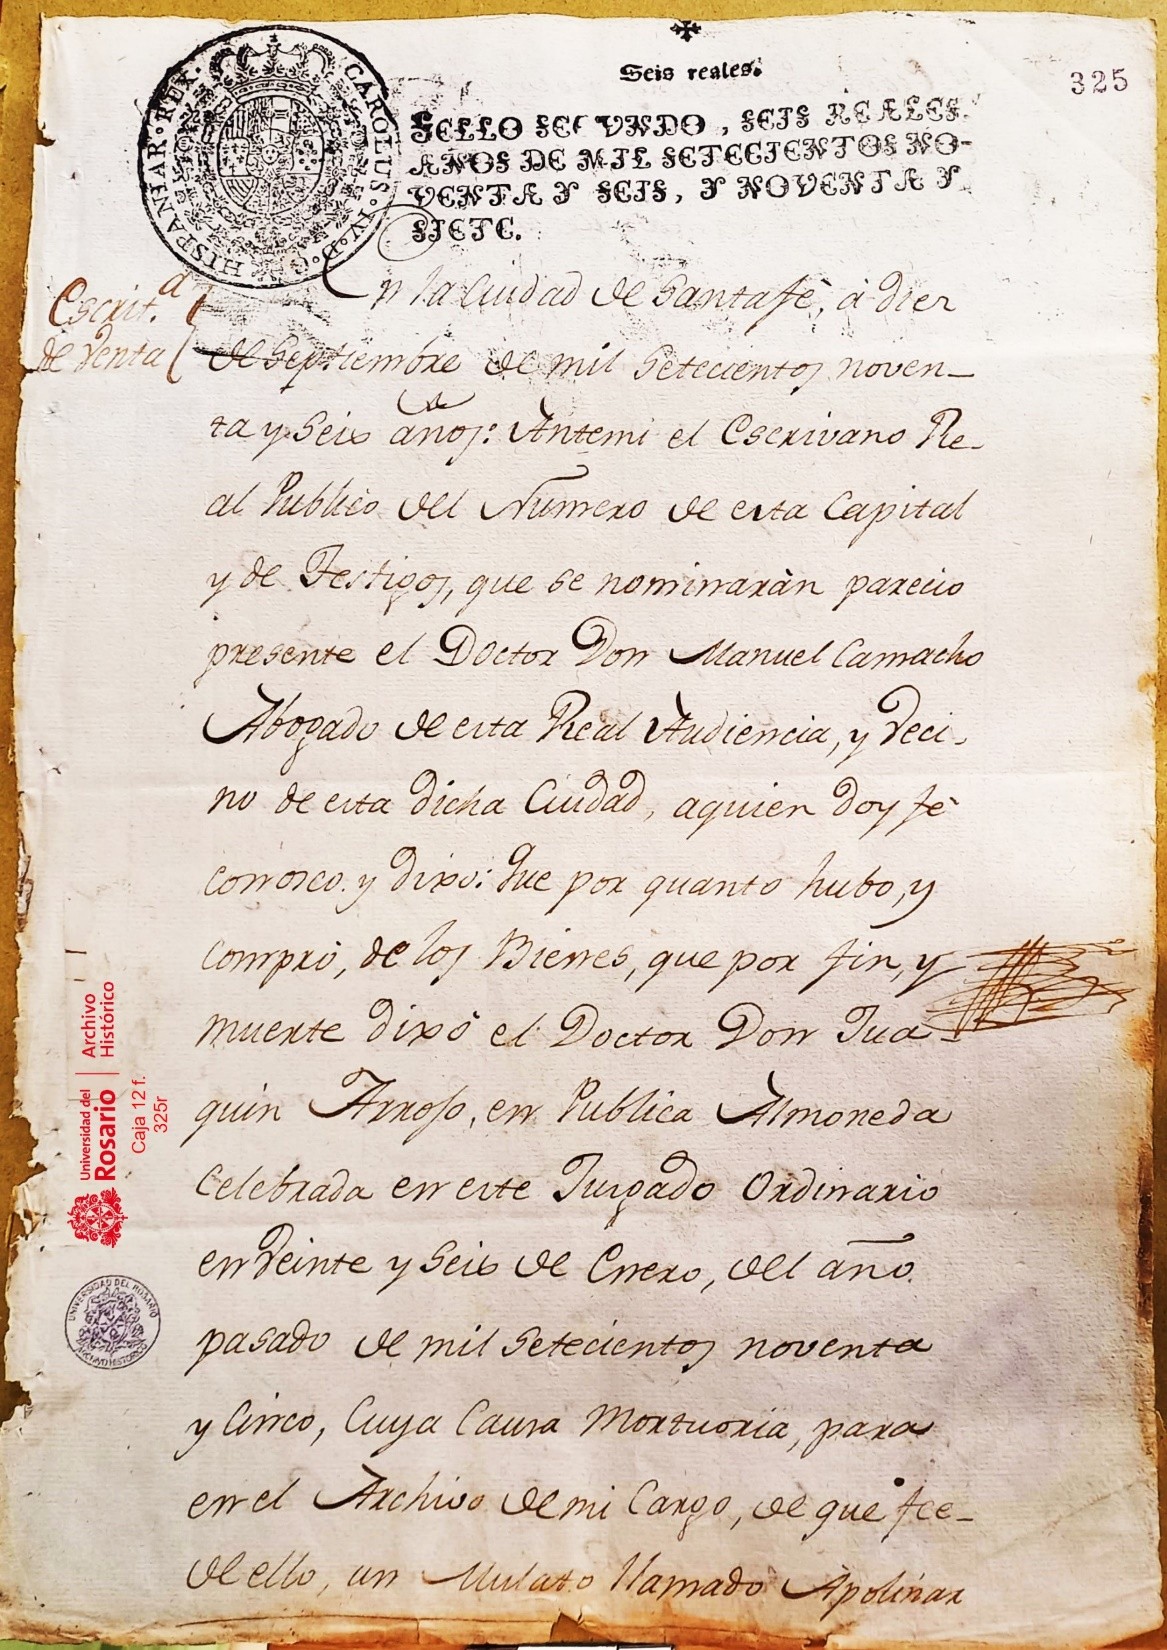 Seis reales.
325
SELLO SEGUNDO, SEIS REALES.
AÑOS DE MIL SETECIENTOS NO-
VENTA Y SEIS, Y NOVENTA Y
SIETE.
HISPANIAR·REX· CAROLUS·IV·D·G·
Escrit.a
de Venta
En la Ciudad de Santafè, à diez
de Septiembre de mil Setecientos noven-
ta y Seis años: Antemi el Escrivano Re-
al Publico del Numero de esta Capital
y de Testigos, que se nominaràn parecio
presente el Doctor Don Manuel Camacho
Abogado de esta Real Audiencia, y Veci-
no de esta dicha Ciudad, aquien doy fè
conosco. y dixo: Que por quanto hubo, y
comprò, de los Bienes, que por fin, y
muerte dixò el Doctor Don Jua-
quin Arroso, en Publica Almoneda
Celebrada en este Jusgado Ordinario
en Veinte y Seis de Enero, del año
pasado de mil Setecientos noventa
y Cinco, Cuya Causa Mortuoria, para
en el Archivo de mi Cargo, de que fee-
de ello, un Mulato llamado Apolinar
Universidad del
Rosario
Archivo
Histórico
Caja 12 f.
325r
UNIVERSIDAD DEL ROSARIO
ARCHIVO HISTORICO